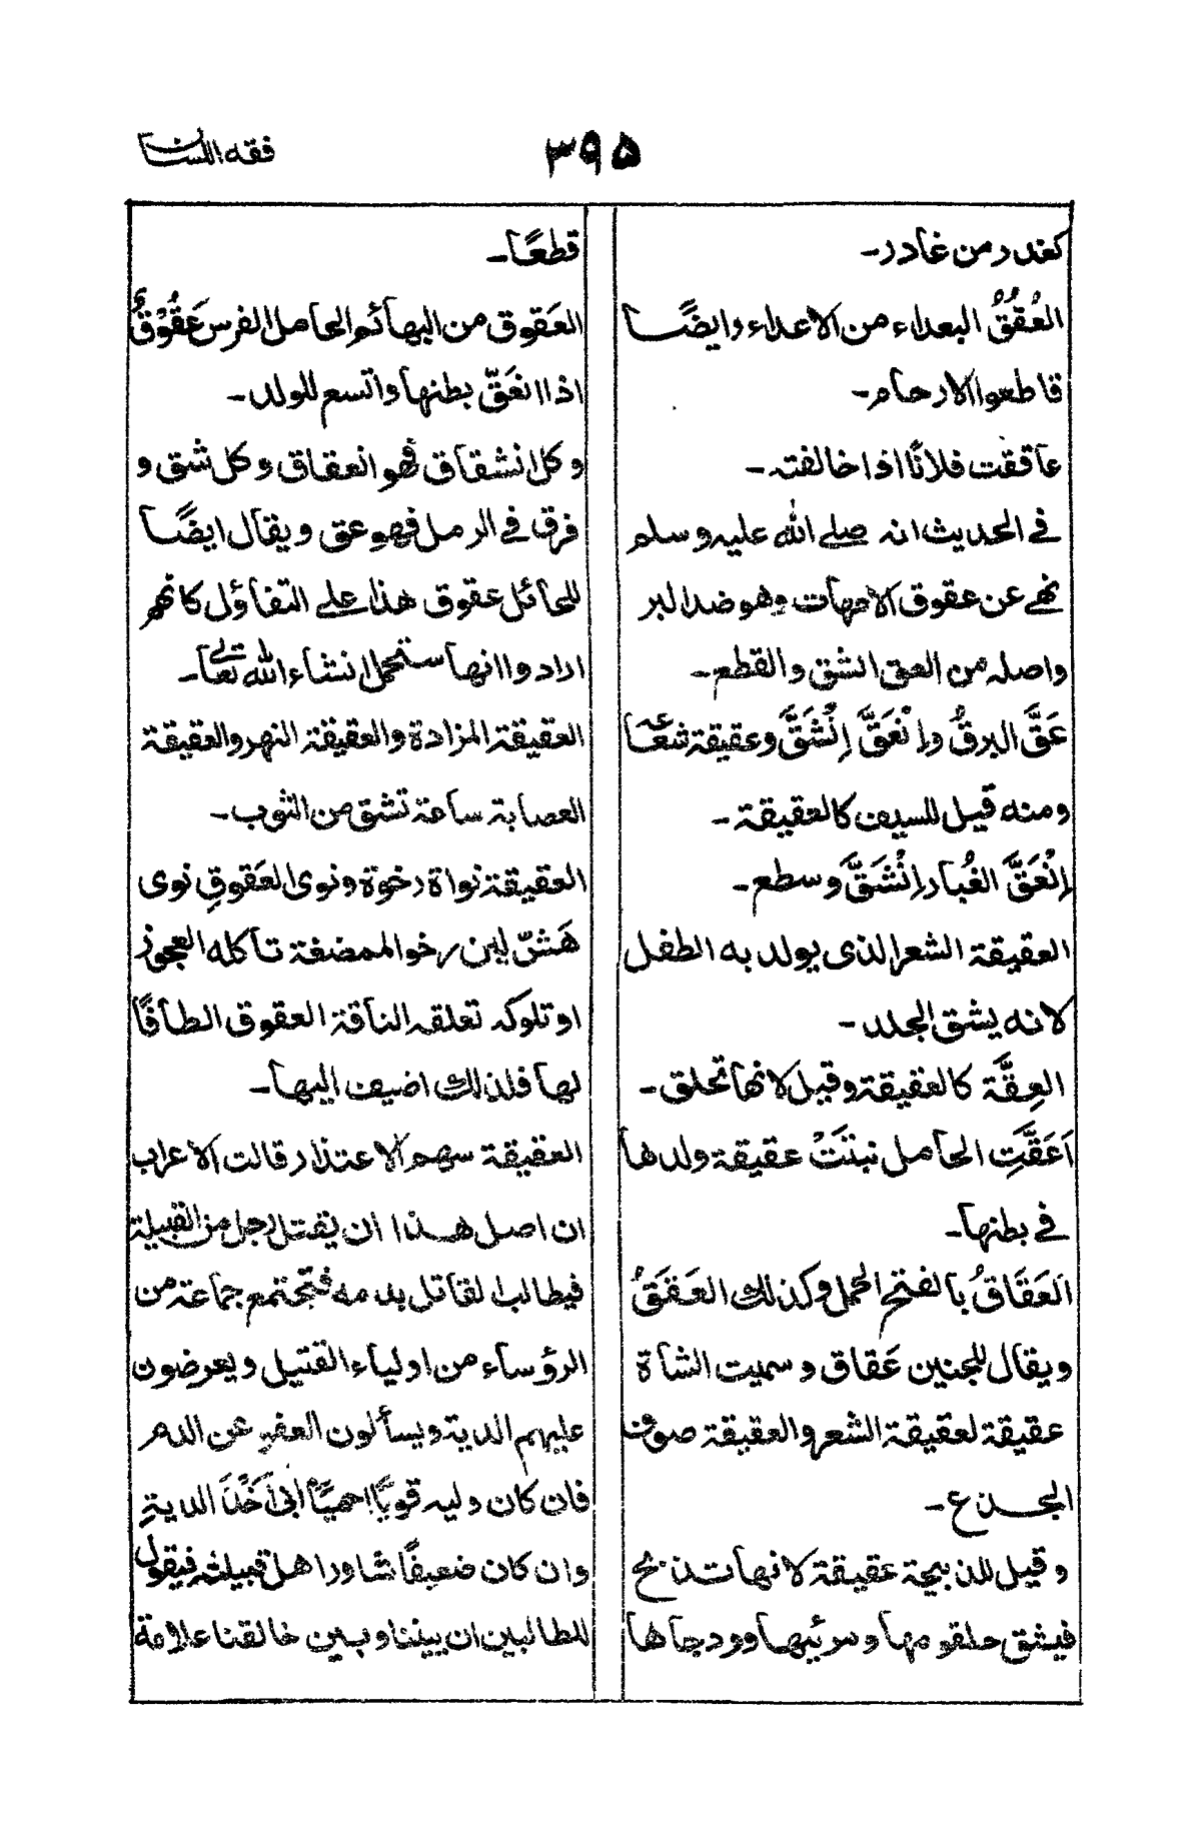 ۳۹۵
فقه اللسان
کغدر من غادر۔
العُقُقُ البعداء من الاعداء وایضًا
قاطعوا الارحام۔
عاققت فلانًا اذا خالفته۔
فی الحدیث انه صلے الله علیه وسلم
نهے عن عقوق الامهات وهو ضد البر
واصله من العق الشق والقطع۔
عَقَّ البرقُ وإنْعَقَّ إنْشَقَّ وعقیقة شعاعه
ومنه قیل للسیف کالعقیقة۔
إنْعَقَّ الغُبار إنْشَقَّ وسطع۔
العقیقة الشعر الذی یولد به الطفل
لانه یشق الجلد۔
العِقَّة کالعقیقة وقیل لانها تحلق۔
اَعَقَّتِ الحامل نبتَتْ عقیقة ولدها
فی بطنها۔
العَقَاقُ بالفتح الحمل وکذلك العَقَقُ
ویقال للجنین عَقاق وسمیت الشاة
عقیقة لعقیقة الشعر والعقیقة صوف
الجذع۔
وقیل للذبیحة عقیقة لانها تذبح
فیشق حلقومها ومریئها وودجاها
قطعًا۔
العَقوق من البهائم الحامل الفرس عَقُوْقٌ
اذا انعَقّ بطنها واتسع للولد۔
وکل انشقاق فهو انعقاق وکل شق و
فرق فی الرمل فهو عق ویقال ایضًا
للحائل عقوق هذا علے التفاؤل کانهم
ارادوا انها ستحمل انشاء الله تعالے۔
العقیقة المزادة والعقیقة النهر والعقیقة
العصابة ساعة تشق من الثوب۔
العقیقة نواة رخوة ونوی العَقوقِ نوی
هَشّ لین رخو الممضغة تأکله العجوز
او تلوکه تعلفه الناقة العقوق الطافًا
لها فلذلك اضیف الیها۔
العقیقة سهم الاعتذار قالت الاعراب
ان اصل هذا ان یقتل رجل من القبیلة
فیطالب القاتل بدمه فتجتمع جماعة من
الرؤساء من اولیاء القتیل ویعرضون
علیهم الدیة ویسألون العفو عن الدم
فان کان ولیه قویًّا حمیًّا أبیٰ أخْذَ الدیةِ
وان کان ضعیفًا شاور اهل قبیلته فیقول
للطالبین ان بیننا وبین خالقنا علامة